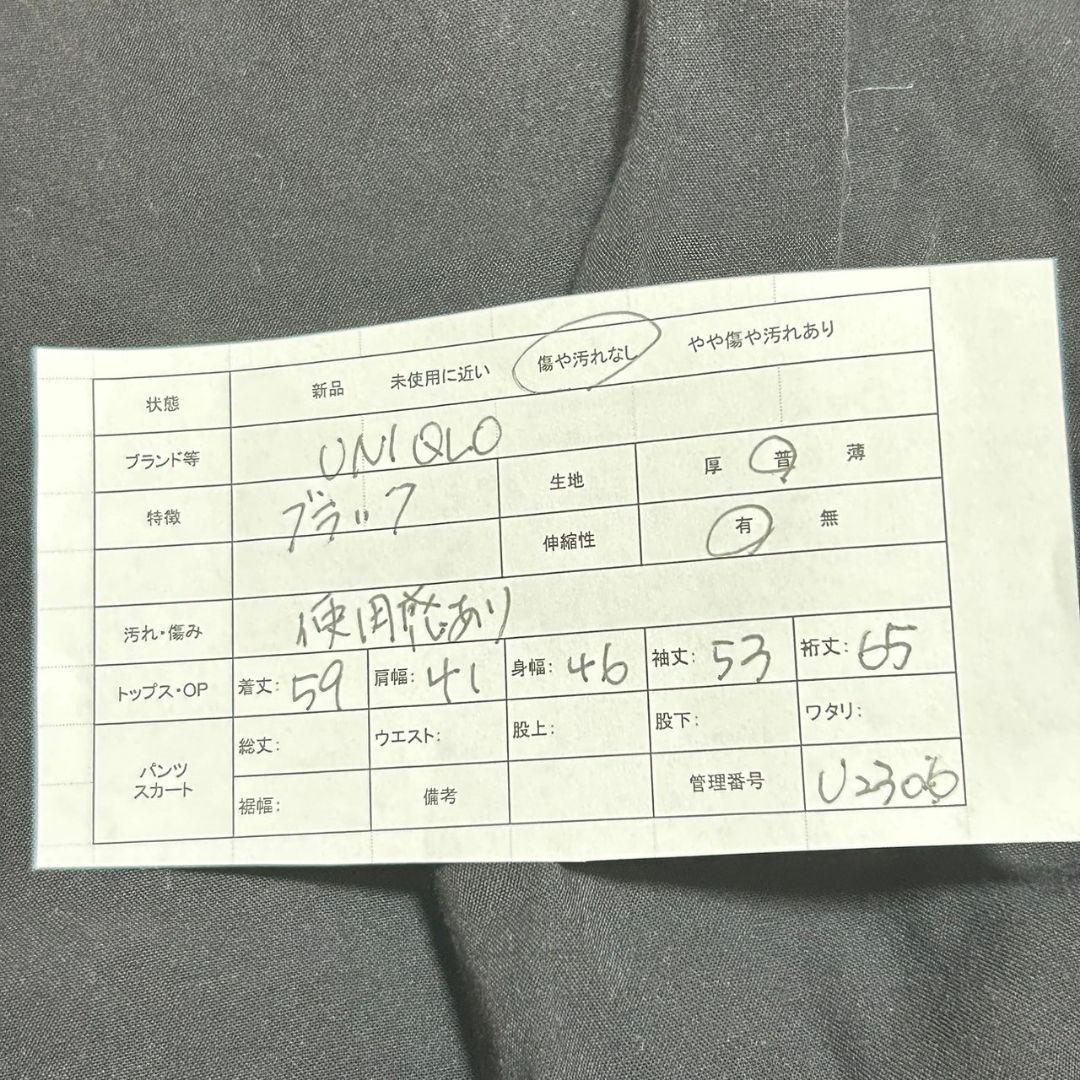 状態 新品 未使用に近い 傷や汚れなし やや傷や汚れあり
ブランド等 UNIQLO
特徴 ブラック 生地 厚 普 薄
伸縮性 有 無
汚れ・傷み 使用感あり
トップス・OP 着丈: 59 肩幅: 41 身幅: 46 袖丈: 53 裄丈: 65
パンツ スカート 総丈: ウエスト: 股上: 股下: ワタリ:
裾幅: 備考 管理番号 U2306